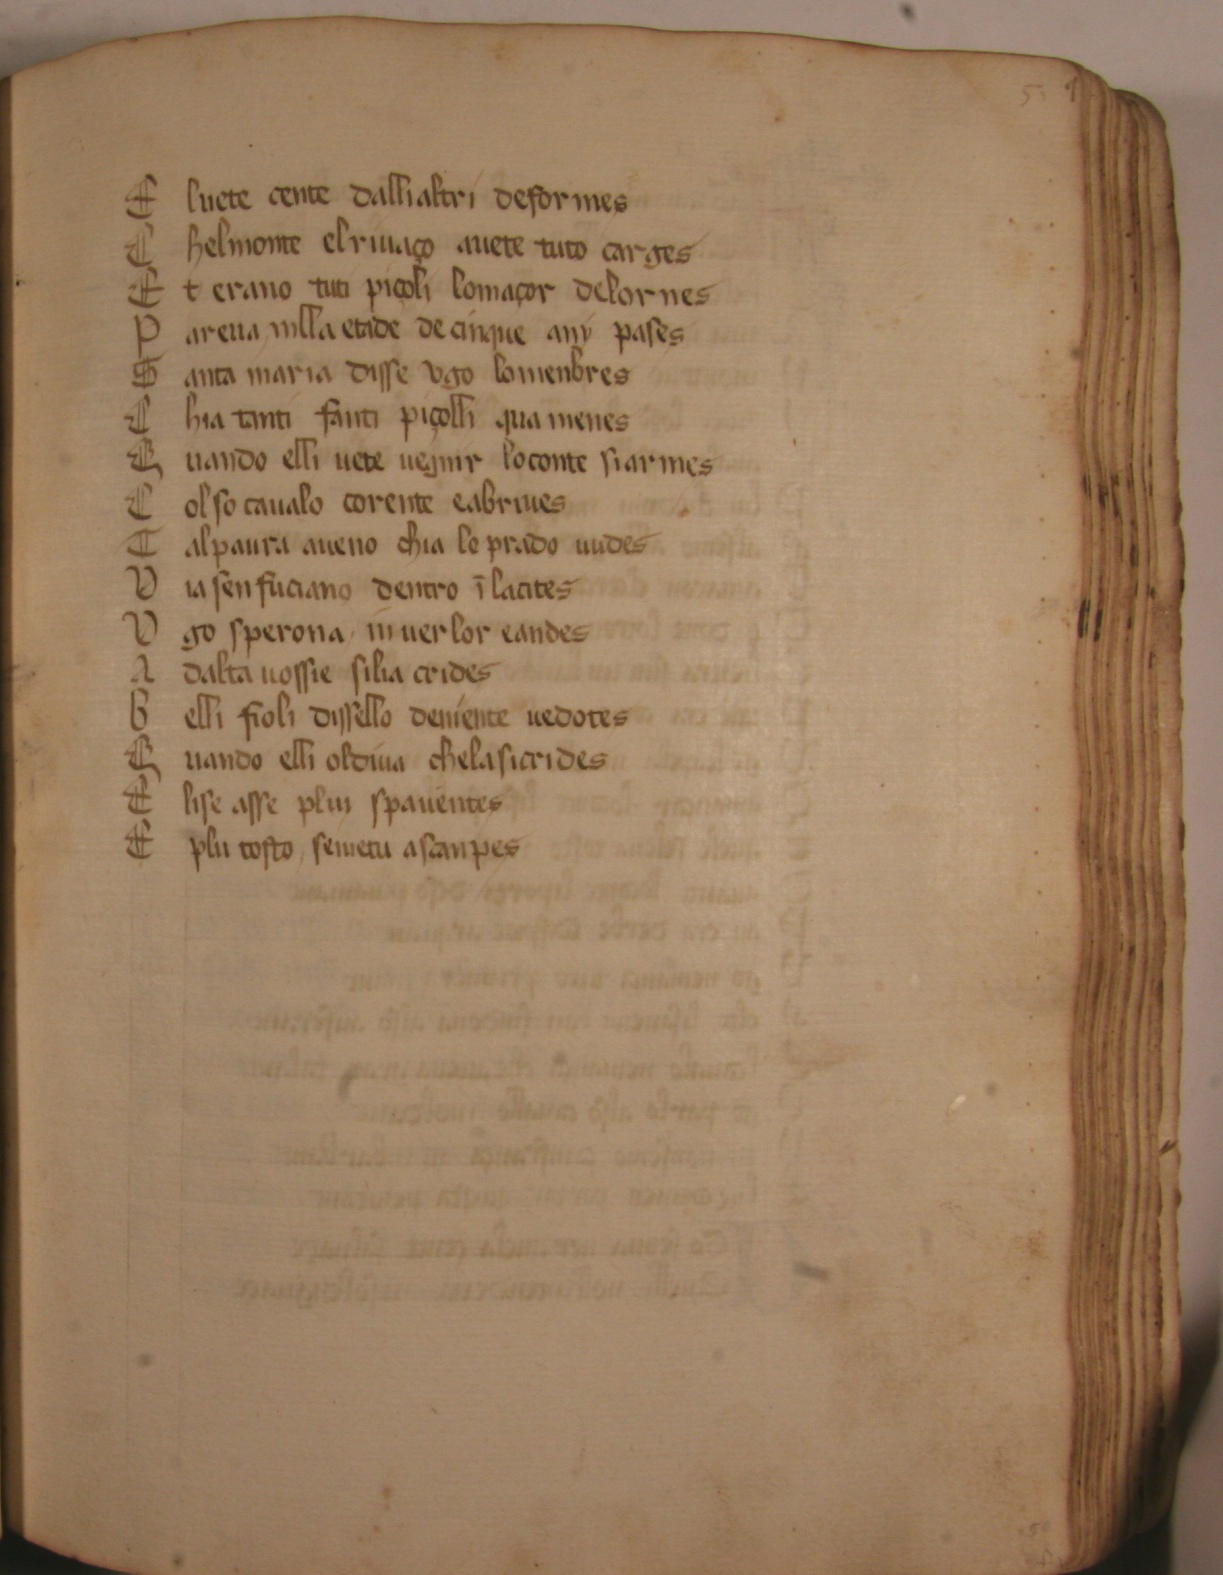 53
E luete cente dalli altri deformes
C helmonte el riuaço auete tuto carges
E t erano tuti piçoli lomaçor delor nes
P areua nilla etade de cinque any pases
S anta maria disse vgo lo menbres
C hia tanti fanti piçolli qua menes
Q uando elli uete uegnir lo conte si armes
C ol so caualo corente e abriues
T al paura aueno chia le prado uudes
V ia sen fuciano dentro ĩ la cites
V go sperona inuer lor eandes
A dalta uossie si lia crides
B elli fioli dissello deniente uedotes
Q uando elli oldiua che la si crides
E li se asse plui spauentes
E plu tosto se metu a scanpes